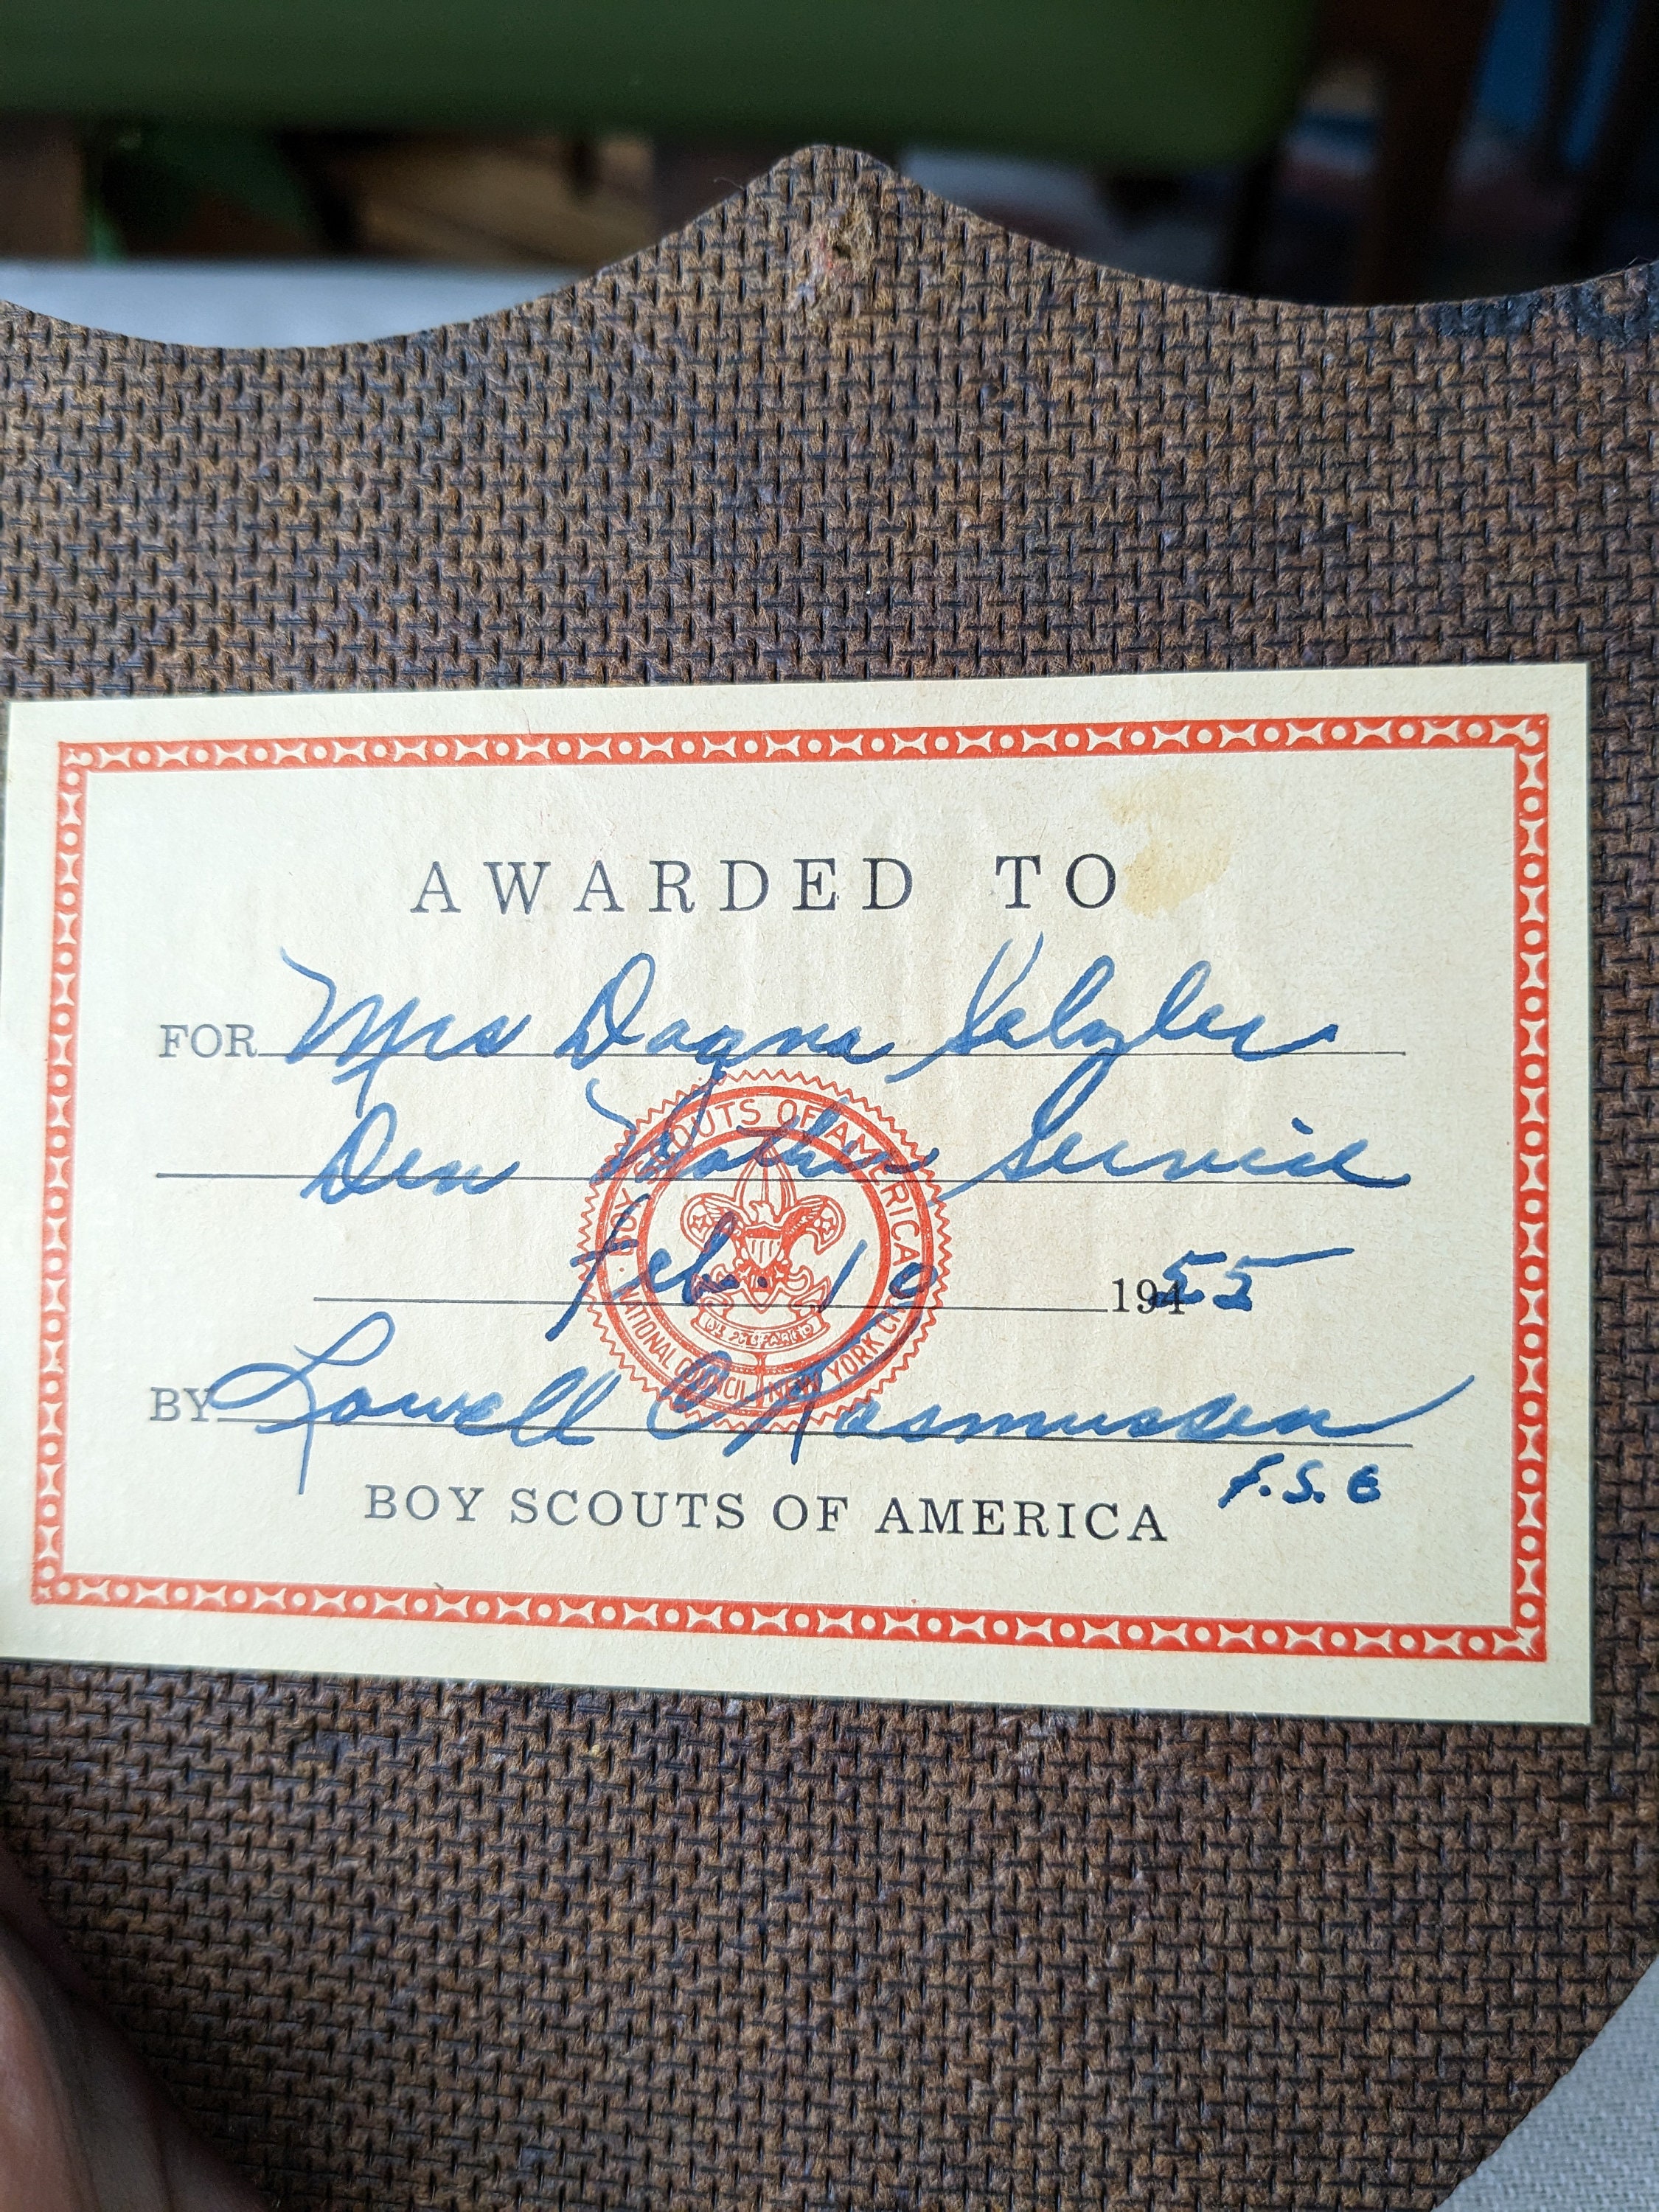 AWARDED TO
FOR Mrs Selzler
Den Mother Service
Feb. 10 19455
BY Lowell C Rasmussen
F.S.E
BOY SCOUTS OF AMERICA
BOY SCOUTS OF AMERICA
BE PREPARED
NATIONAL COUNCIL NEW YORK CITY